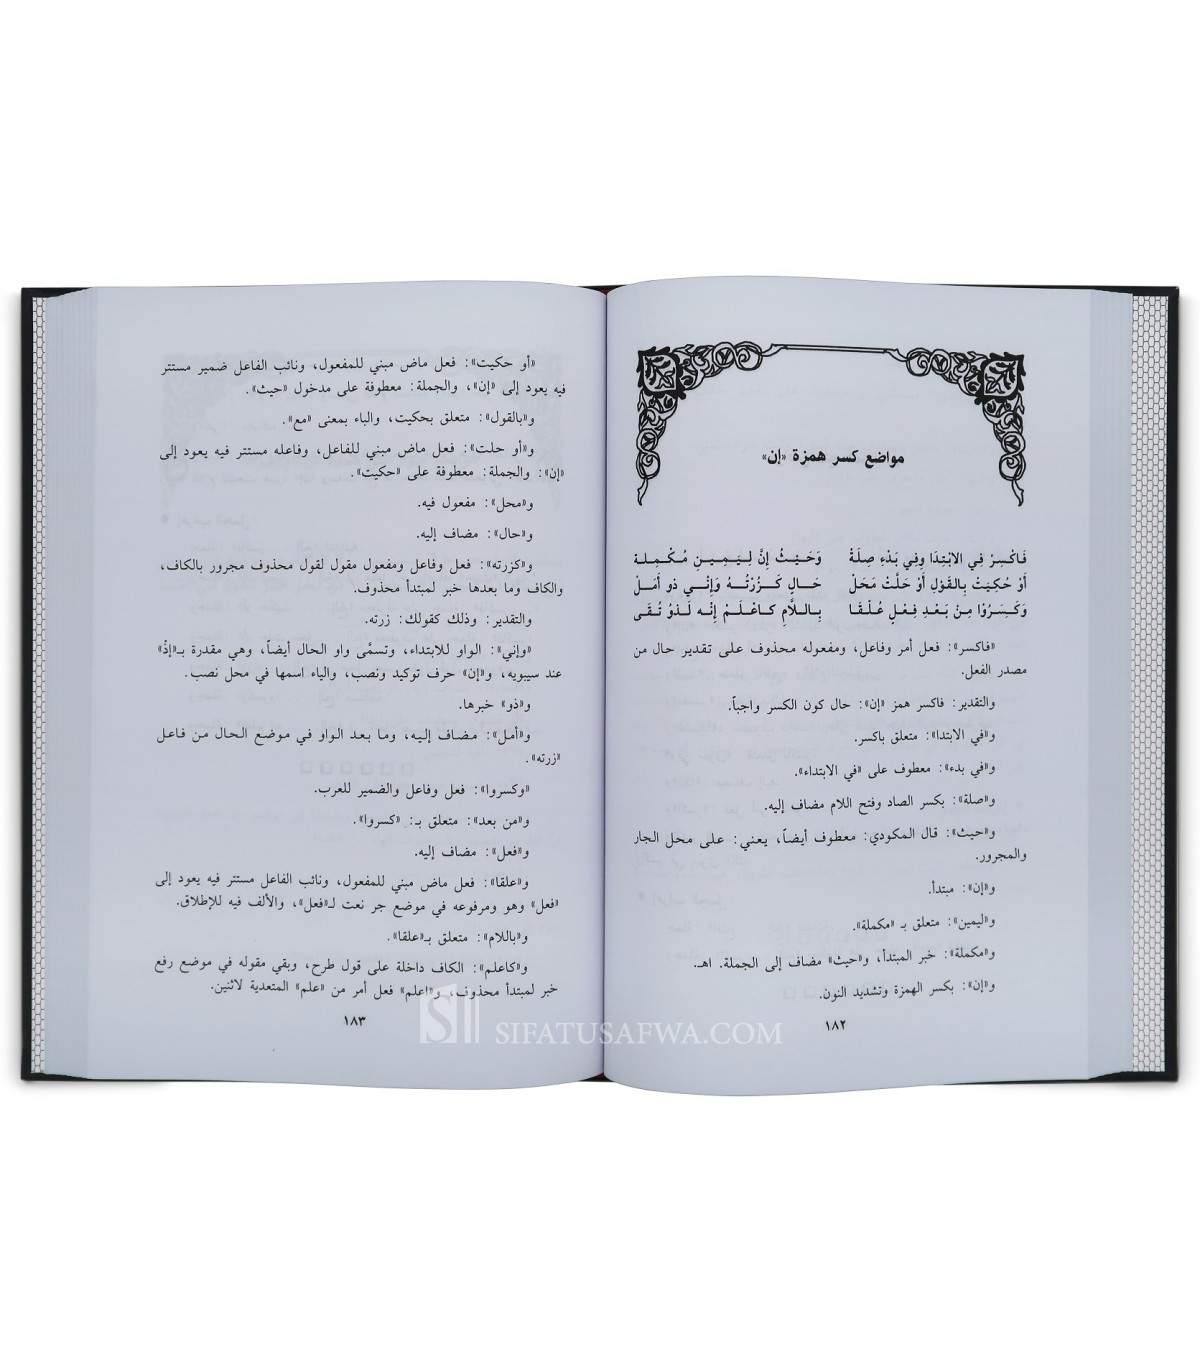 مواضع كسر همزة «إن»
فَاكْسِرْ فِي الابْتِدَا وَفِي بَدْءِ صِلَةْ وَحَيْثُ إِنَّ لِيَمِينِ مُكْمِلَة
أَوْ حُكِيَتْ بِالقَوْلِ أَوْ حَلَّتْ مَحَلْ حَالٍ كَزُرْتُهُ وَإِنِّي ذو أَمَلْ
وَكَسَرُوْا مِنْ بَعْدِ فِعْلٍ عُلِّقَا بِاللَّامِ كاعْلَمْ إِنَّه لَذو تُقَى
«فاكسر»: فعل أمر وفاعل، ومفعوله محذوف على تقدير حال من
مصدر الفعل.
والتقدير: فاكسر همز «إن»: حال كون الكسر واجباً.
و«في الابتدا»: متعلق باكسر.
و«في بدء»: معطوف على «في الابتداء».
و«صلة»: بكسر الصاد وفتح اللام مضاف إليه.
و«حيث»: قال المكودي: معطوف أيضاً، يعني: على محل الجار
والمجرور.
و«إن»: مبتدأ.
و«ليمين»: متعلق بـ «مكملة».
و«مكملة»: خبر المبتدأ، و«حيث» مضاف إلى الجملة. اهـ.
و«إن»: بكسر الهمزة وتشديد النون.
١٨٢
«أو حكيت»: فعل ماض مبني للمفعول، ونائب الفاعل ضمير مستتر
فيه يعود إلى «إن»، والجملة: معطوفة على مدخول «حيث».
و«بالقول»: متعلق بحكيت، والباء بمعنى «مع».
و«أو حلت»: فعل ماض مبني للفاعل، وفاعله مستتر فيه يعود إلى
«إن»: والجملة: معطوفة على «حكيت».
و«محل»: مفعول فيه.
و«حال»: مضاف إليه.
و«كزرته»: فعل وفاعل ومفعول مقول لقول محذوف مجرور بالكاف،
والكاف وما بعدها خبر لمبتدأ محذوف.
والتقدير: وذلك كقولك: زرته.
«وإني»: الواو للابتداء، وتسمَّى واو الحال أيضاً، وهي مقدرة بـ«إذْ»
عند سيبويه، و«إن» حرف توكيد ونصب، والياء اسمها في محل نصب.
و«ذو» خبرها.
و«أمل»: مضاف إليه، وما بعد الواو في موضع الحال من فاعل
«زرته».
«وكسروا»: فعل وفاعل والضمير للعرب.
و«من بعد»: متعلق بـ: «كسروا».
و«فعل»: مضاف إليه.
و«علقا»: فعل ماض مبني للمفعول، ونائب الفاعل مستتر فيه يعود إلى
«فعل» وهو ومرفوعه في موضع جر نعت لـ«فعل»، والألف فيه للإطلاق.
و«باللام»: متعلق بـ«علقا».
و«كاعلم»: الكاف داخلة على قول طرح، وبقي مقوله في موضع رفع
خبر لمبتدأ محذوف، و«اعلم» فعل أمر من «علم» المتعدية لاثنين.
١٨٣
SIFATUSAFWA.COM